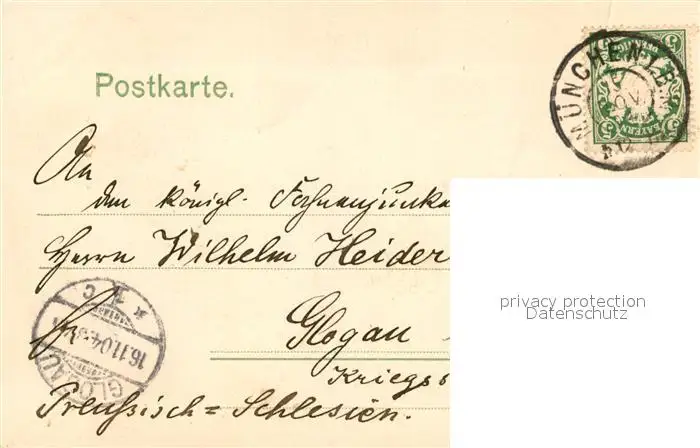 Postkarte.
MÜNCHEN I.B.
BAYERN
5
An
den königl. Fahnenjunke
Herrn Wilhelm Heider
Glogau
Kriegs
Preußisch=Schlesien.
GLOGAU
16.11.04
* 1 C
privacy protection
Datenschutz